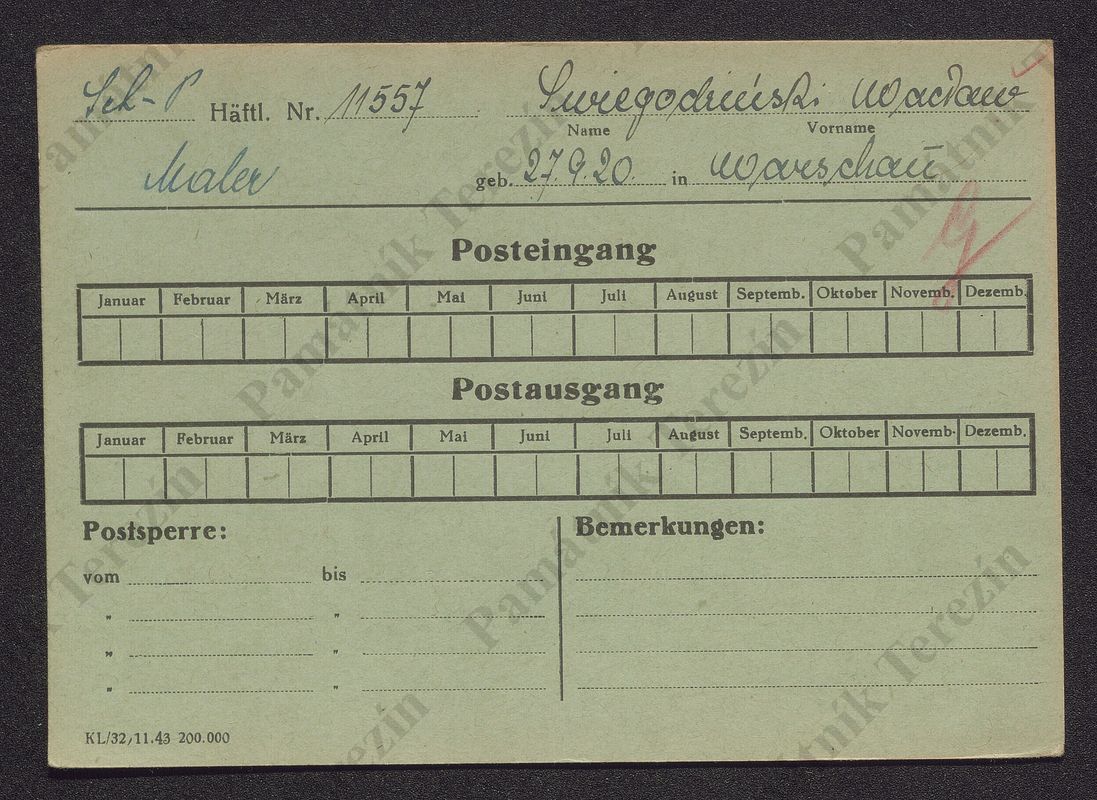 Sch-P Häftl. Nr. 11557 Swiegodziński Wacław
Name Vorname
Maler geb. 27.9.20. in Warschau
Posteingang
Januar Februar März April Mai Juni Juli August Septemb. Oktober Novemb. Dezemb.
Postausgang
Januar Februar März April Mai Juni Juli August Septemb. Oktober Novemb. Dezemb.
Postsperre: Bemerkungen:
vom bis
" "
" "
" "
KL/32/11.43 200.000
Památník Terezín